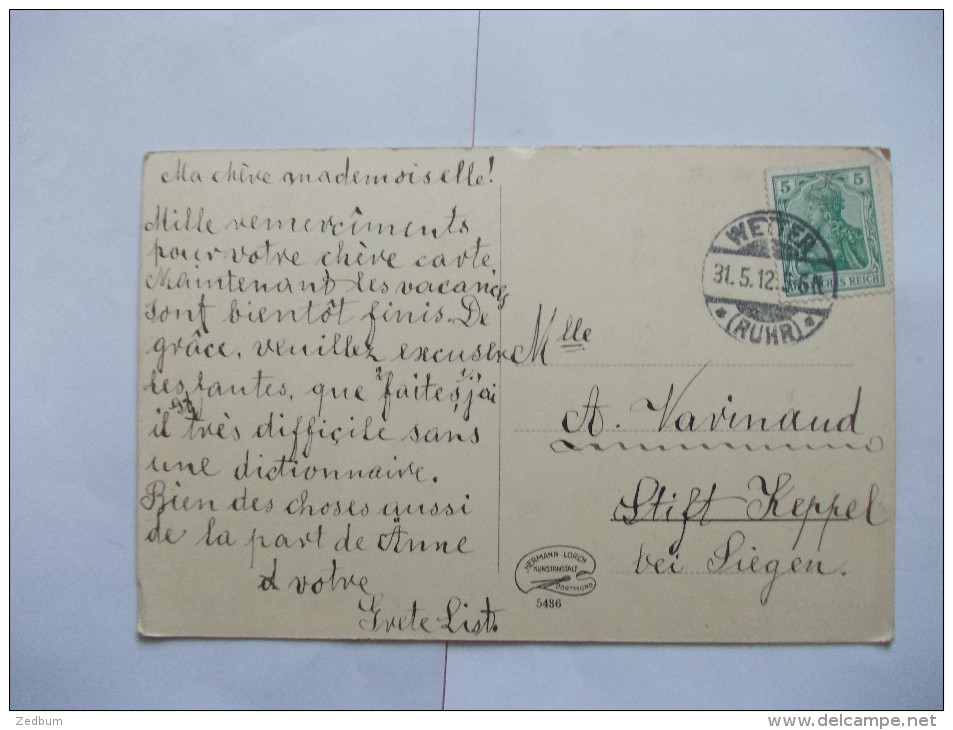 Ma chère mademoiselle!
Mille remercîments
pour votre chère carte.
Maintenant les vacances
sont bientôt finis. De
grâce, veuillez excuser
les fautes, que j'ai faites,
il est très difficile sans
une dictionnaire.
Bien des choses aussi
de la part de Änne
et votre
Grete List.
5 5
DEUTSCHES REICH
WETTER
31.5.12. 5-6N
* (RUHR) *
Mlle
A. Varinaud
Stift Keppel
bei Siegen.
HERMANN LORCH
KUNSTANSTALT
DORTMUND
5436
Zedbum
www.delcampe.net